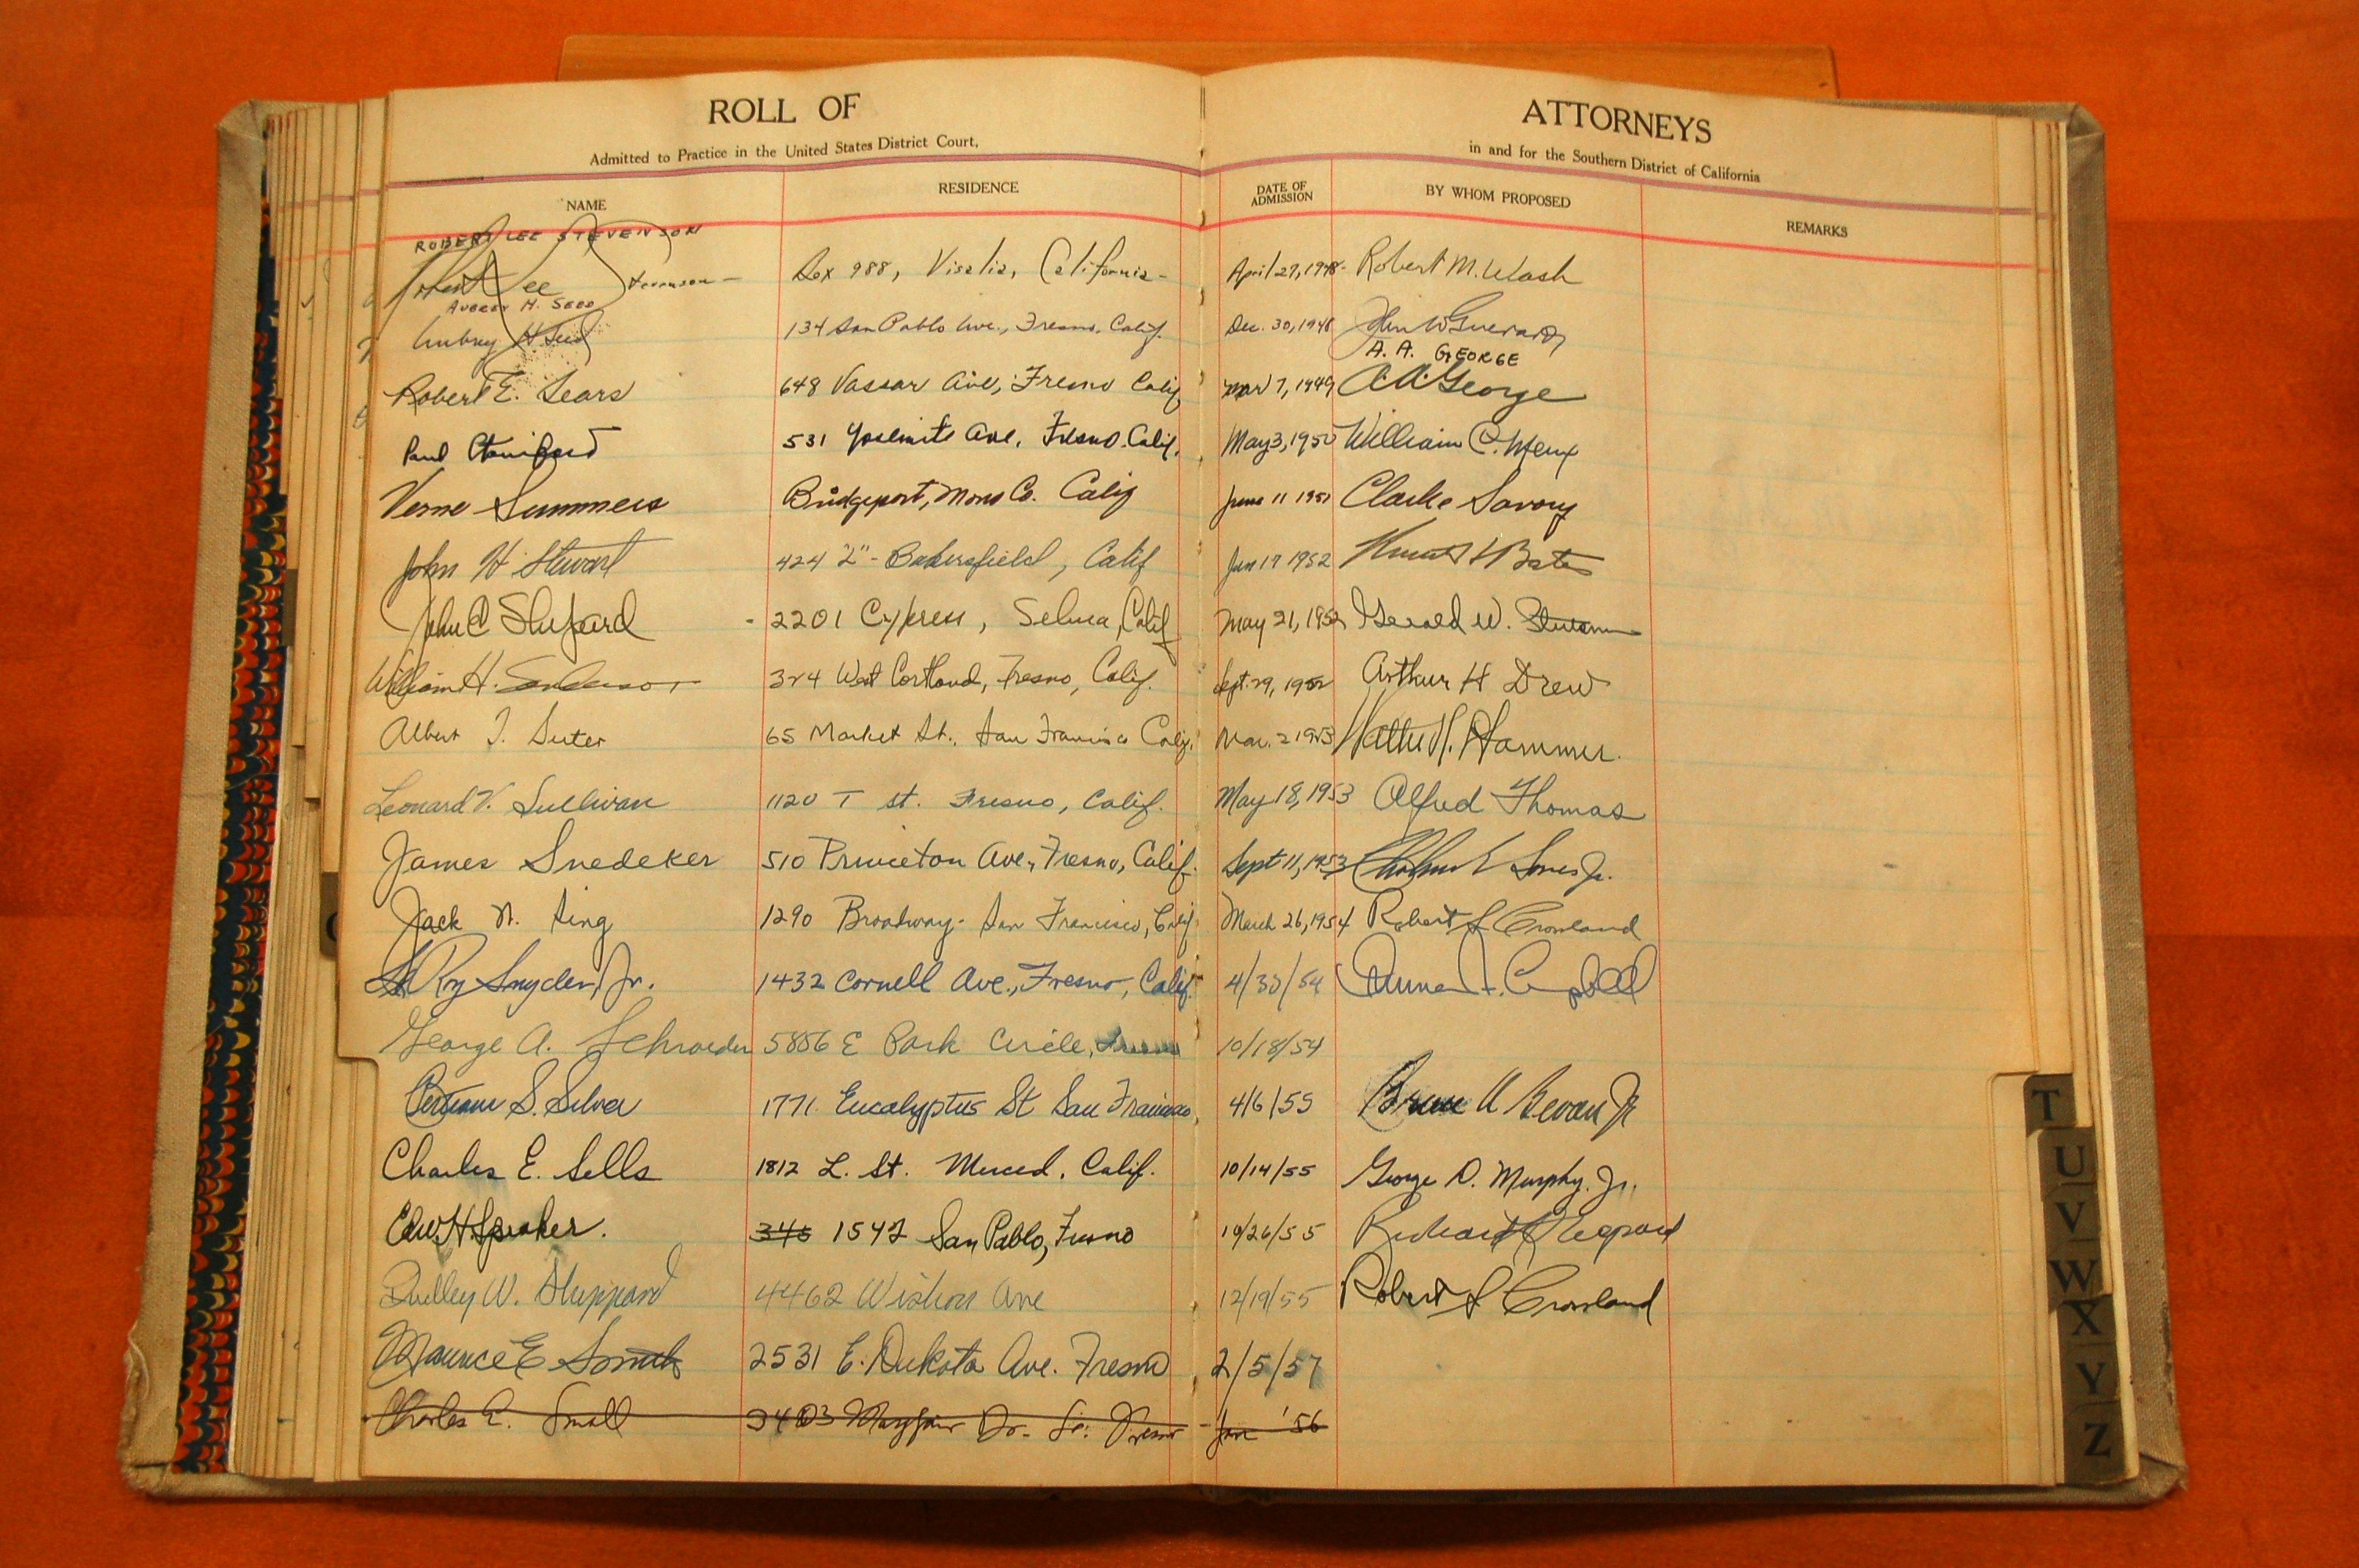 ROLL OF ATTORNEYS
Admitted to Practice in the United States District Court, in and for the Southern District of California
NAME RESIDENCE DATE OF ADMISSION BY WHOM PROPOSED REMARKS
ROBERT LEE STEVENSON
Robert Lee Stevenson - Box 988, Visalia, California - April 27, 1948 - Robert M. Wash
AUBREY H. SEED
Aubrey H. Seed 134 San Pablo Ave., Fresno, Calif. Dec. 30, 1948
A. A. GEORGE
Robert E. Sears 648 Vassar Ave, Fresno Calif Mar 7, 1949 A. A. George
Paul 531 Yosemite Ave, Fresno, Calif. May 3, 1950 William C.
Verne Summers Bridgeport, Mono Co. Calif June 11 1951 Clarke Savory
John H Stewart 424 "L" - Bakersfield, Calif Jun 17 1952
John C Shepard - 2201 Cypress, Selma, Calif May 21, 1952 Gerald W.
William H. 324 West Cortland, Fresno, Calif. Sept. 29, 1952 Arthur H Drew
Albert J. Suter 65 Market St. San Francisco Calif. Mar. 2 1953 Hammer
Leonard V. Sullivan 1120 T St. Fresno, Calif. May 18, 1953 Alfred Thomas
James Snedeker 510 Princeton Ave, Fresno, Calif. Sept 11, 1953 Jones Jr.
Jack N. Sing 1290 Broadway - San Francisco, Calif. March 26, 1954 Robert S Crossland
LeRoy Snyder, Jr. 1432 Cornell Ave., Fresno, Calif. 4/30/54 Campbell
George A. Schroeder 5856 E Park Circle, Fresno 10/18/54
S. Silver 1771 Eucalyptus St San Francisco, 4/6/55 Bevan Jr
Charles E. Sells 1812 L. St. Merced, Calif. 10/14/55 George D. Murphy, Jr.
Edw. H Spraker. 345 1542 San Pablo, Fresno 10/26/55 Richard Shepard
Dudley W. Sheppard 4462 Wishon Ave 12/19/55 Robert S Crossland
Maurice E Smith 2531 E. Dakota Ave. Fresno 2/5/57
Charles E. Small 3403 Mayfair Dr. So. Fresno - Jan '56
T
U
V
W
X
Y
Z